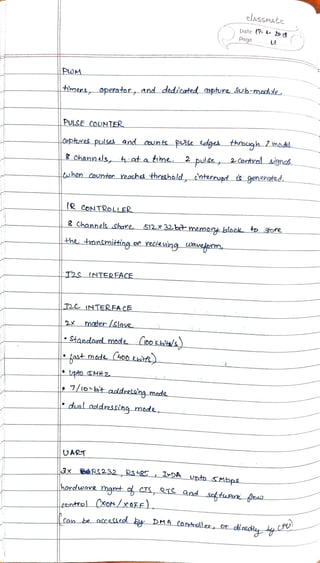 classmate
Date 17. 6. 2019
Page 11
PWM
timers, operator, and dedicated capture sub-module.
PULSE COUNTER
captures pulses and counts pulse edges through 7 modes
8 channels, 4 at a time. 2 pulse, 2 control signals
when counter reaches threshold, interrupt is generated.
IR CONTROLLER
8 channels share 512 x 32 bit memory block to store
the transmitting or recieving waveform
I2S INTERFACE
I2C INTERFACE
2x master/slave
• Standard mode (100 kbits/s)
• fast mode (400 kbit/s)
• upto 5MHz
• 7/10-bit addressing mode
• dual addressing mode.
UART
3x RS232, RS485, IrDA upto 5Mbps
hardware mgmt of CTS, RTS and software flow
control (XON/XOFF).
Can be accessed by DMA controller, or directly by CPU